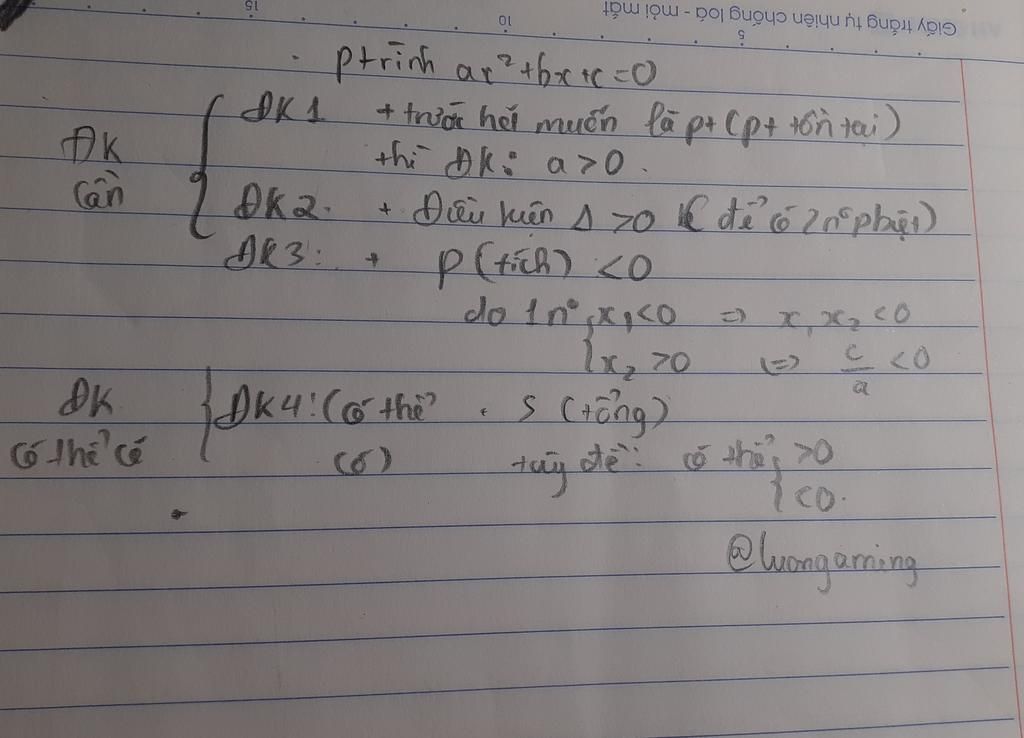 Giấy trắng tự nhiên chống loá - mỏi mắt
5 10 15
ptrình ax²+bx+c=0
ĐK1 + trước hết muốn là pt (pt tồn tại)
ĐK cần
thì ĐK: a>0.
ĐK2. + Điều kiện Δ>0 (để có 2 n° pbiệt)
ĐK3: + P (tích) <0
do 1 n° { x₁<0 => x₁x₂<0
x₂>0 (=> c/a <0
ĐK có thể có
ĐK4: (có thể . S (tổng)
có) tùy đề: có thể { >0
<0.
@luongaming